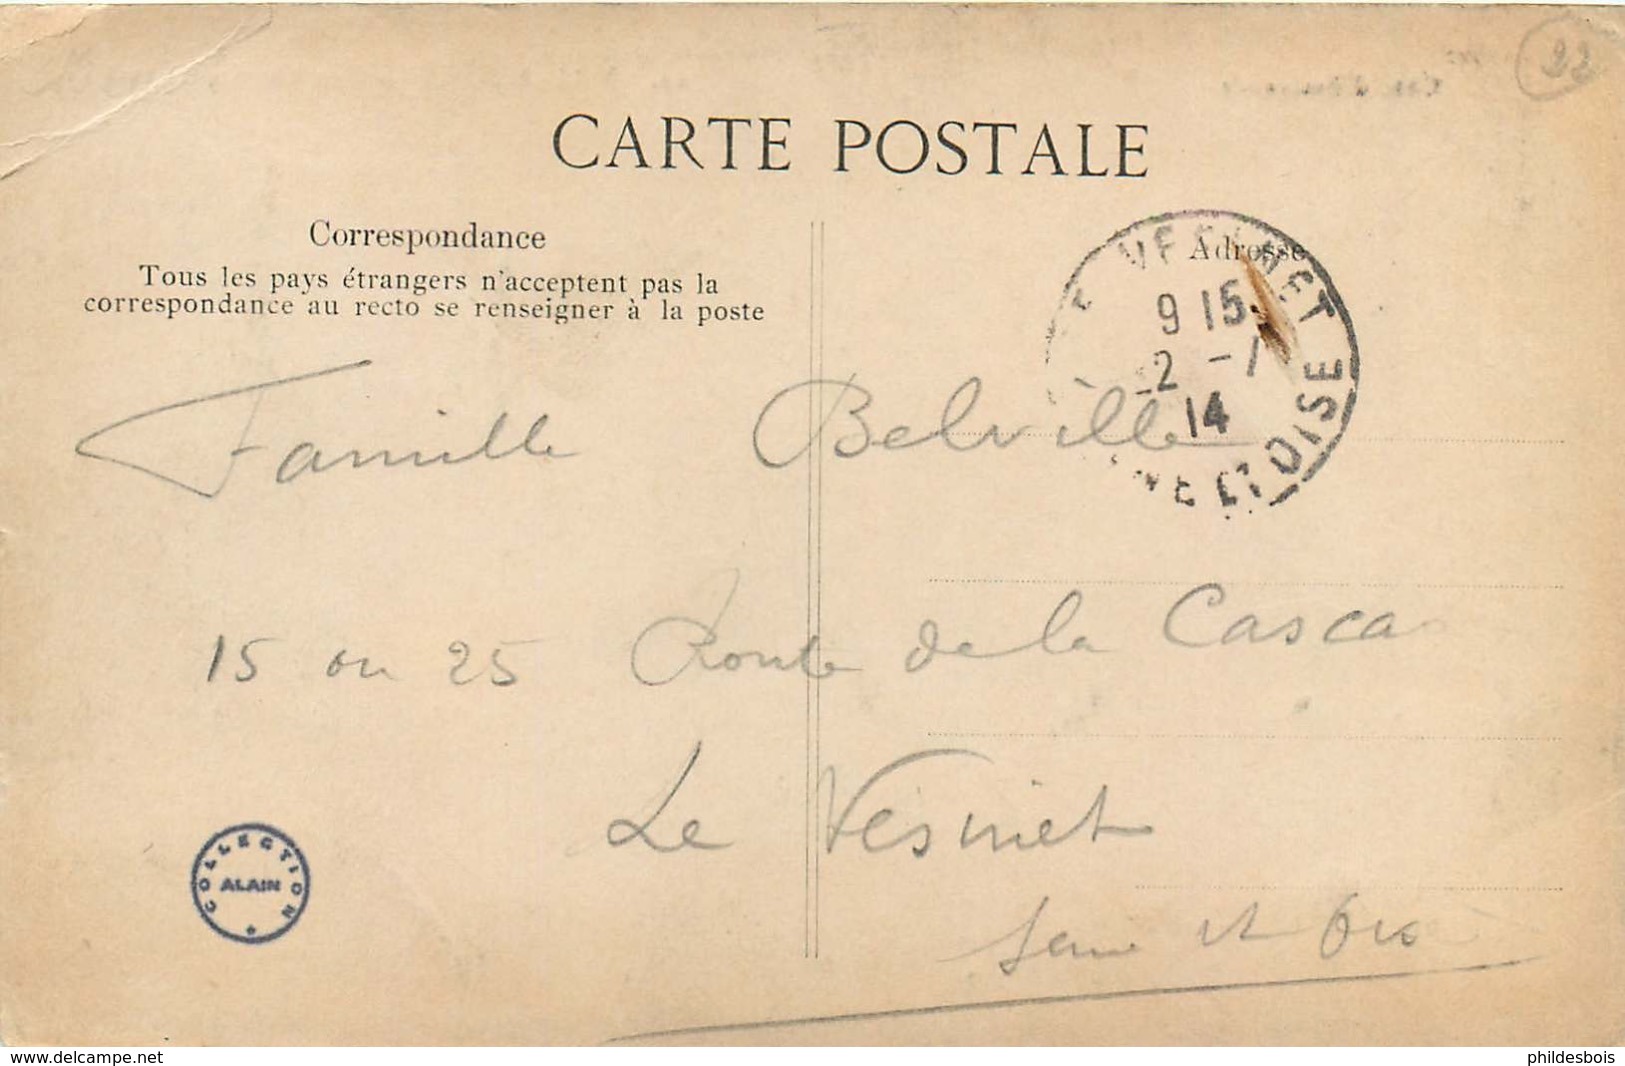 22
CARTE POSTALE
Correspondance
Adresse
Tous les pays étrangers n'acceptent pas la
correspondance au recto se renseigner à la poste
9 15
2 - 1
14
OISE
Famille Belville
15 ou 25 Route de la Casca
Le Vésinet
Seine et Oise
COLLECTION
ALAIN
www.delcampe.net
phildesbois